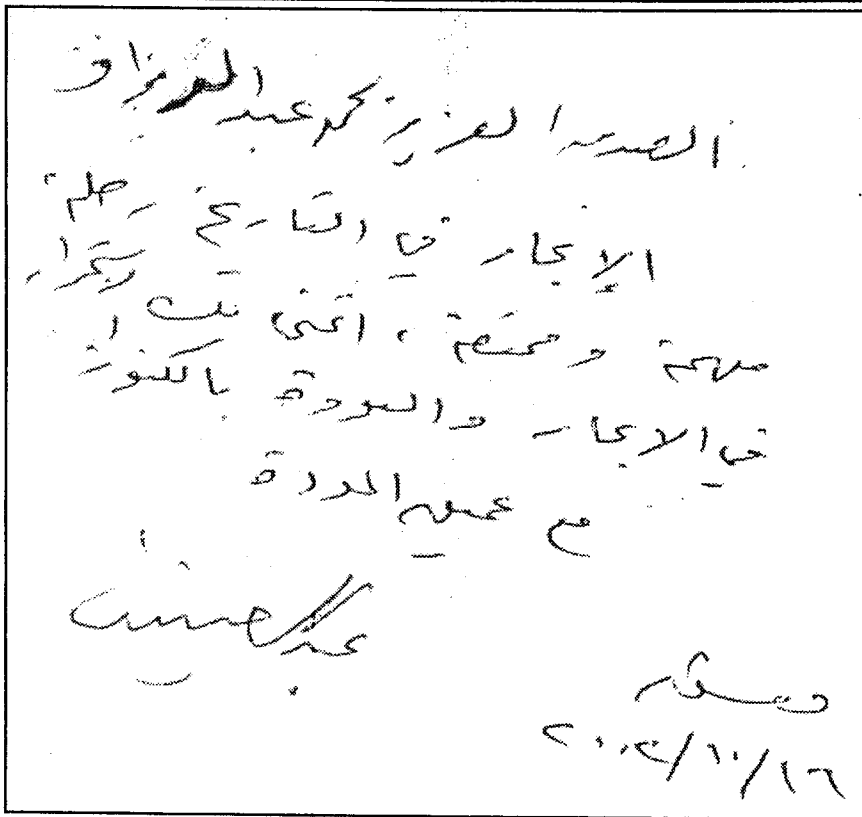 الصديق العزيز محمد عبد الرزاق
الإبحار في التاريخ رحلة
مهمة وممتعة ، اتمنى لك استمرار
في الابحار والعودة بالكنوز
مع عميق المودة
عبد
دمشق
١٦/١٠/٢٠٠٢